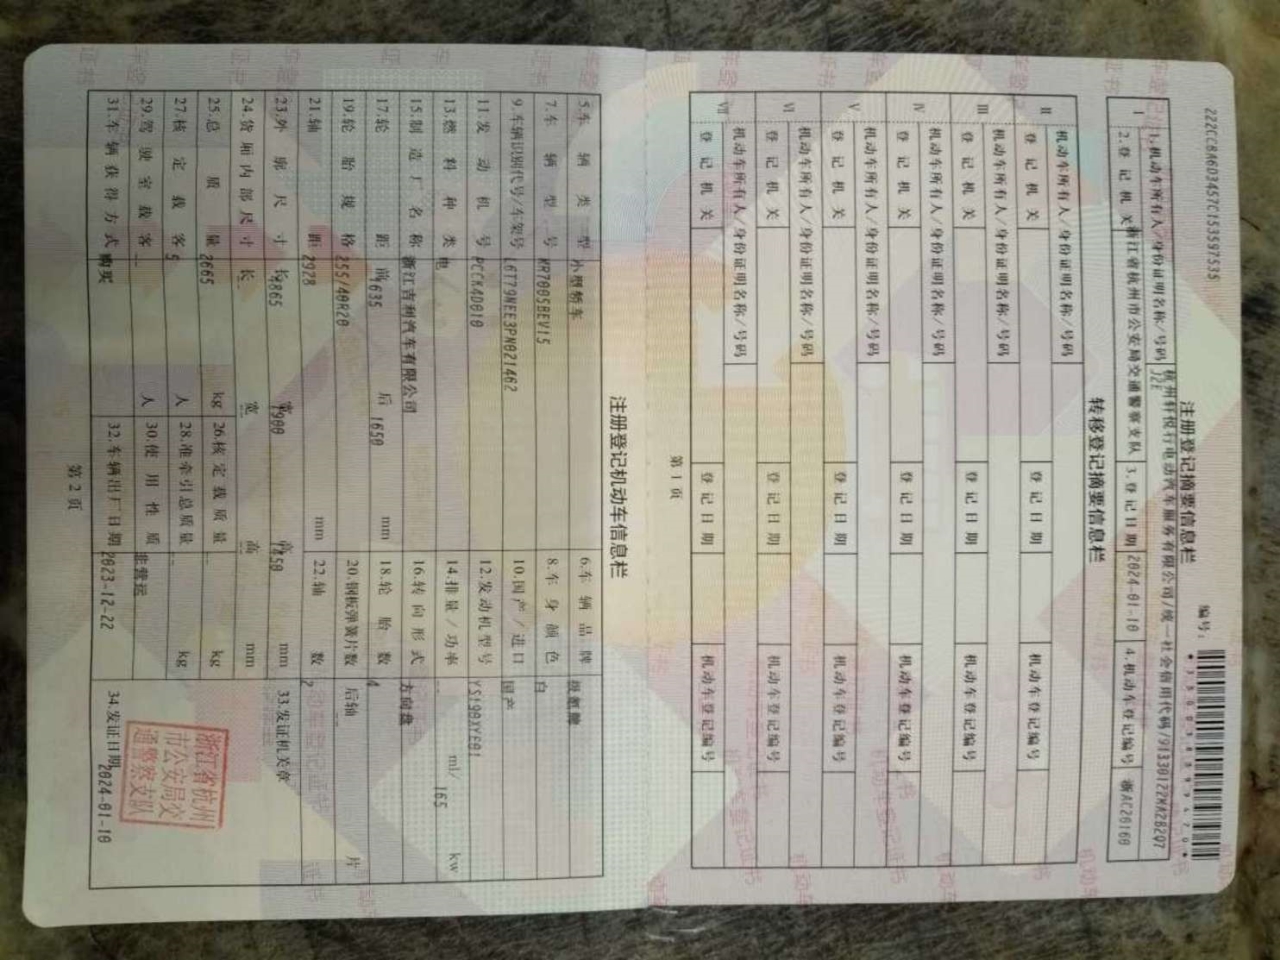 222CCBA603457C153597535
编号:
*330038599470*
注册登记摘要信息栏
I 1.机动车所有人/身份证明名称/号码 杭州轩悦行电动汽车服务有限公司/统一社会信用代码/91330122MA2B2Q7
J2E
2.登记机关 浙江省杭州市公安局交通警察支队 3.登记日期 2024-01-10 4.机动车登记编号 浙AC20160
转移登记摘要信息栏
II 机动车所有人/身份证明名称/号码
登记机关 登记日期 机动车登记编号
III 机动车所有人/身份证明名称/号码
登记机关 登记日期 机动车登记编号
IV 机动车所有人/身份证明名称/号码
登记机关 登记日期 机动车登记编号
V 机动车所有人/身份证明名称/号码
登记机关 登记日期 机动车登记编号
VI 机动车所有人/身份证明名称/号码
登记机关 登记日期 机动车登记编号
VII 机动车所有人/身份证明名称/号码
登记机关 登记日期 机动车登记编号
第1页
注册登记机动车信息栏
5.车辆类型 小型轿车 6.车辆品牌 极氪牌
7.车辆型号 MR7005BEV15 8.车身颜色 白
9.车辆识别代号/车架号 L6T79NEE3PN021462 10.国产/进口 国产
11.发动机号 PCCK4D010 12.发动机型号 YS190XYE01
13.燃料种类 电 14.排量/功率 -- ml/ 165 kw
15.制造厂名称 浙江吉利汽车有限公司 16.转向形式 方向盘
17.轮距 前1635 后 1650 mm 18.轮胎数 4
19.轮胎规格 255/40R20 20.钢板弹簧片数 后轴 -- 片
21.轴距 2928 mm 22.轴数 2
23.外廓尺寸 长4865 宽1900 高1450 mm 33.发证机关章
24.货厢内部尺寸 长 -- 宽 -- 高 -- mm
25.总质量 2665 kg 26.核定载质量 -- kg
27.核定载客 5 人 28.准牵引总质量 -- kg
29.驾驶室载客 -- 人 30.使用性质 非营运
31.车辆获得方式 购买 32.车辆出厂日期 2023-12-22 34.发证日期 2024-01-10
浙江省杭州
市公安局交
通警察支队
第2页